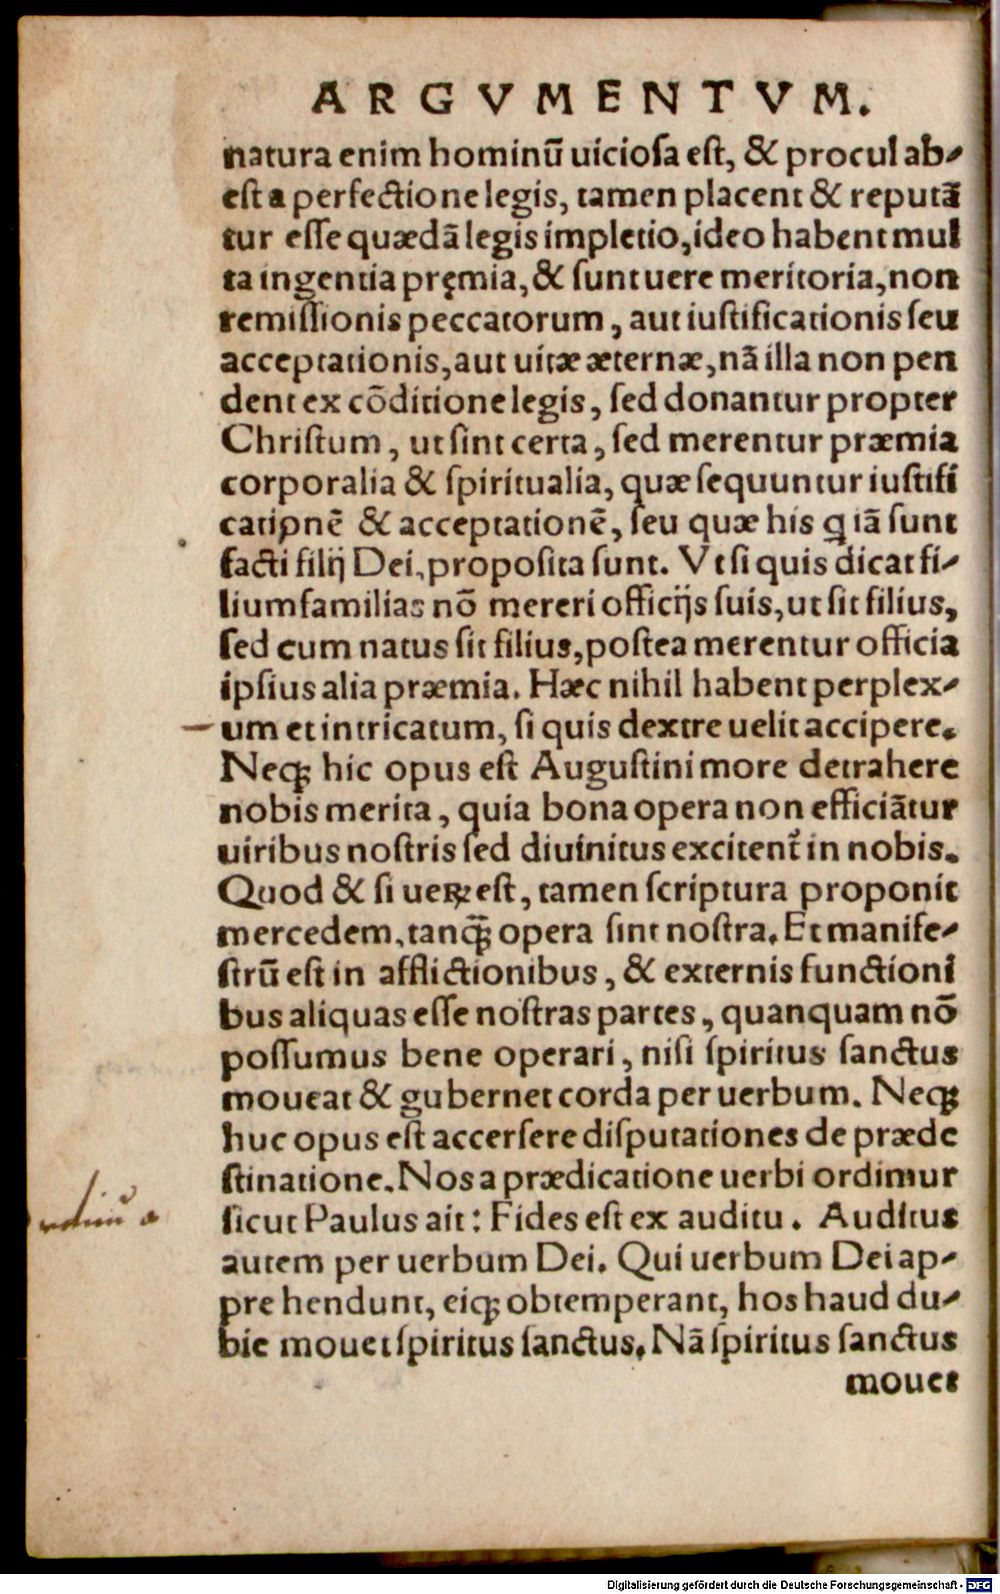 ARGVMENTVM.
natura enim hominū uicioſa eſt, & procul ab-
eſt a perfectione legis, tamen placent & reputā
tur eſſe quædā legis impletio, ideo habent mul
ta ingentia pręmia, & ſunt uere meritoria, non
remiſſionis peccatorum, aut iuſtificationis ſeu
acceptationis, aut uitæ æternæ, nā illa non pen
dent ex cōditione legis, ſed donantur propter
Chriſtum, ut ſint certa, ſed merentur præmia
corporalia & ſpiritualia, quæ ſequuntur iuſtifi
cationē & acceptationē, ſeu quæ his q̄ iā ſunt
facti filij Dei, propoſita ſunt. Vt ſi quis dicat fi-
liumfamilias nō mereri officijs ſuis, ut ſit filius,
ſed cum natus ſit filius, poſtea merentur officia
ipſius alia præmia. Hæc nihil habent perplex-
um et intricatum, ſi quis dextre uelit accipere.
Neqꝫ hic opus eſt Auguſtini more detrahere
nobis merita, quia bona opera non efficiātur
uiribus noſtris ſed diuinitus excitent᷑ in nobis.
Quod & ſi ueꝝ eſt, tamen ſcriptura proponit
mercedem, tanq̄ꝫ opera ſint noſtra. Et manife-
ſtrū eſt in afflictionibus, & externis functioni
bus aliquas eſſe noſtras partes, quanquam nō
poſſumus bene operari, niſi ſpiritus ſanctus
moueat & gubernet corda per uerbum. Neqꝫ
huc opus eſt accerſere diſputationes de præde
ſtinatione. Nos a prædicatione uerbi ordimur
ſicut Paulus ait: Fides eſt ex auditu. Auditus
autem per uerbum Dei. Qui uerbum Dei ap-
prehendunt, eiqꝫ obtemperant, hos haud du-
bie mouet ſpiritus ſanctus. Nā ſpiritus ſanctus
mouet
Digitalisierung gefördert durch die Deutsche Forschungsgemeinschaft - DFG